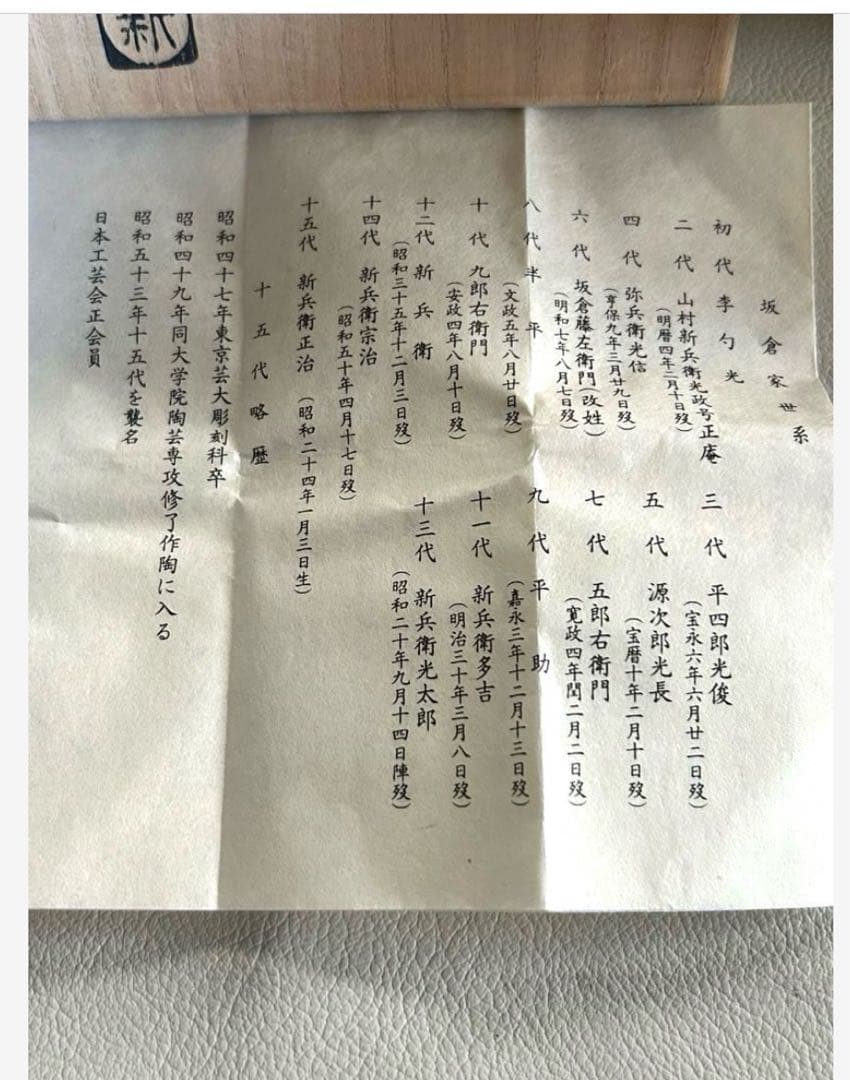 新
坂倉家世系
初代 李勺光
二代 山村新兵衛光政号正庵
(明暦四年二月十日歿)
三代 平四郎光俊
(宝永六年六月廿二日歿)
四代 弥兵衛光信
(享保九年三月廿九日歿)
五代 源次郎光長
(宝暦十年二月十日歿)
六代 坂倉藤左衛門(改姓)
(明和七年八月七日歿)
七代 五郎右衛門
(寛政四年閏二月二日歿)
八代 半平
(文政五年八月廿日歿)
九代 平助
(嘉永三年十二月十三日歿)
十代 九郎右衛門
(安政四年八月十日歿)
十一代 新兵衛多吉
(明治三十年三月八日歿)
十二代 新兵衛
(昭和三十五年十二月三日歿)
十三代 新兵衛光太郎
(昭和二十年九月十四日陣歿)
十四代 新兵衛宗治
(昭和五十年四月十七日歿)
十五代 新兵衛正治 (昭和二十四年一月三日生)
十五代略歴
昭和四十七年東京芸大彫刻科卒
昭和四十九年同大学院陶芸専攻修了作陶に入る
昭和五十三年十五代を襲名
日本工芸会正会員